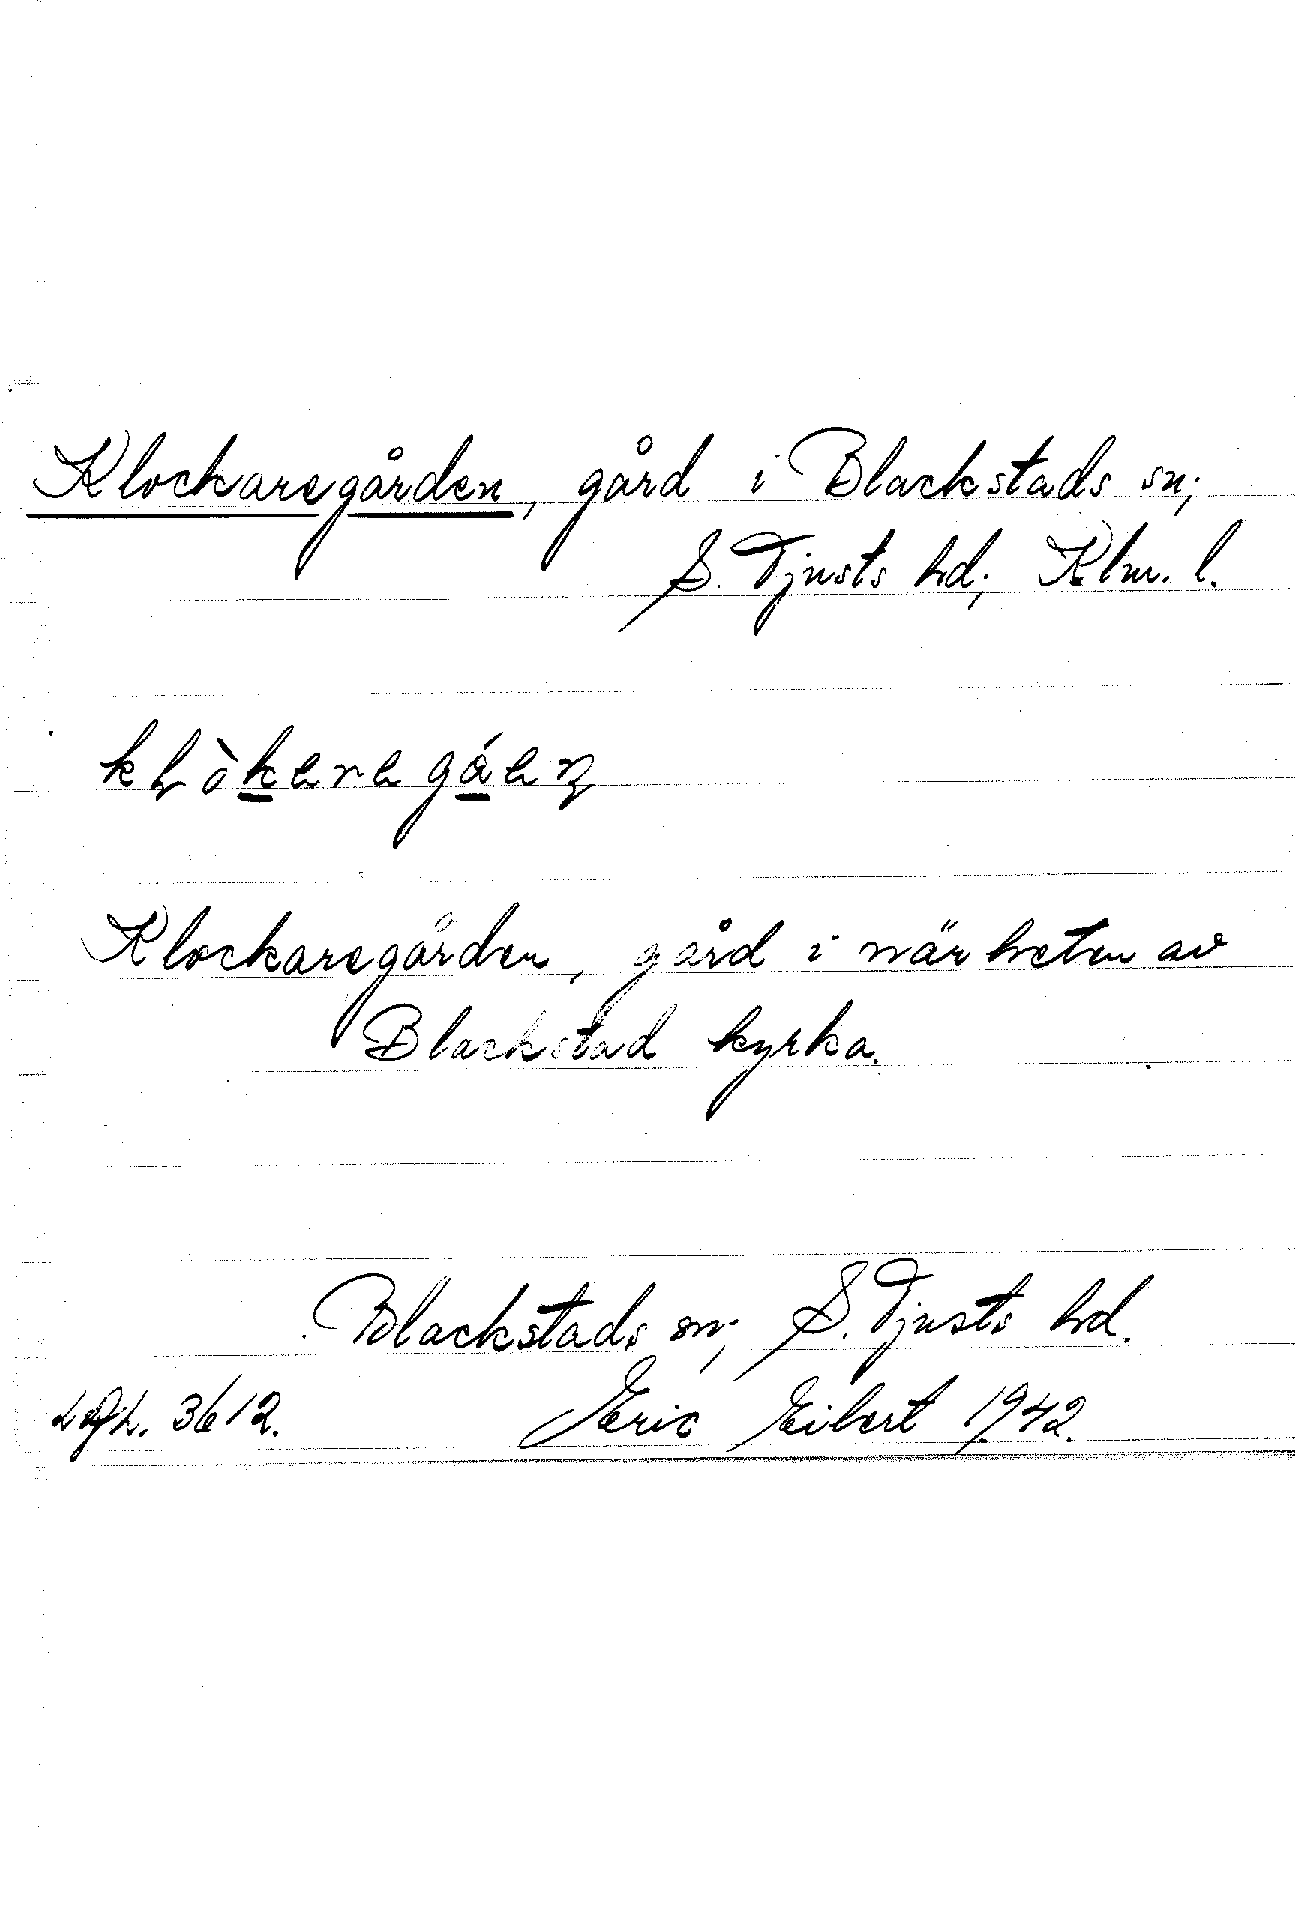 Klockaregården, gård i Blackstads sn;
S. Tjusts hd; Klm. l.
Klockaregården, gård i närheten av
Blackstad kyrka.
Blackstads sn; S. Tjusts hd.
3612. Eric Eibert 1942.